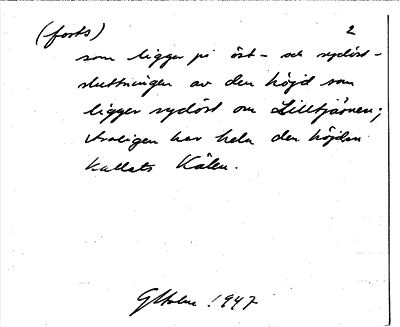 (forts) 2
som ligger på öst- och sydöst-
sluttningen av den höjd som
ligger sydöst om Lilltjärnen;
troligen har hela den höjden
kallats Kölen.
GHolm 1947